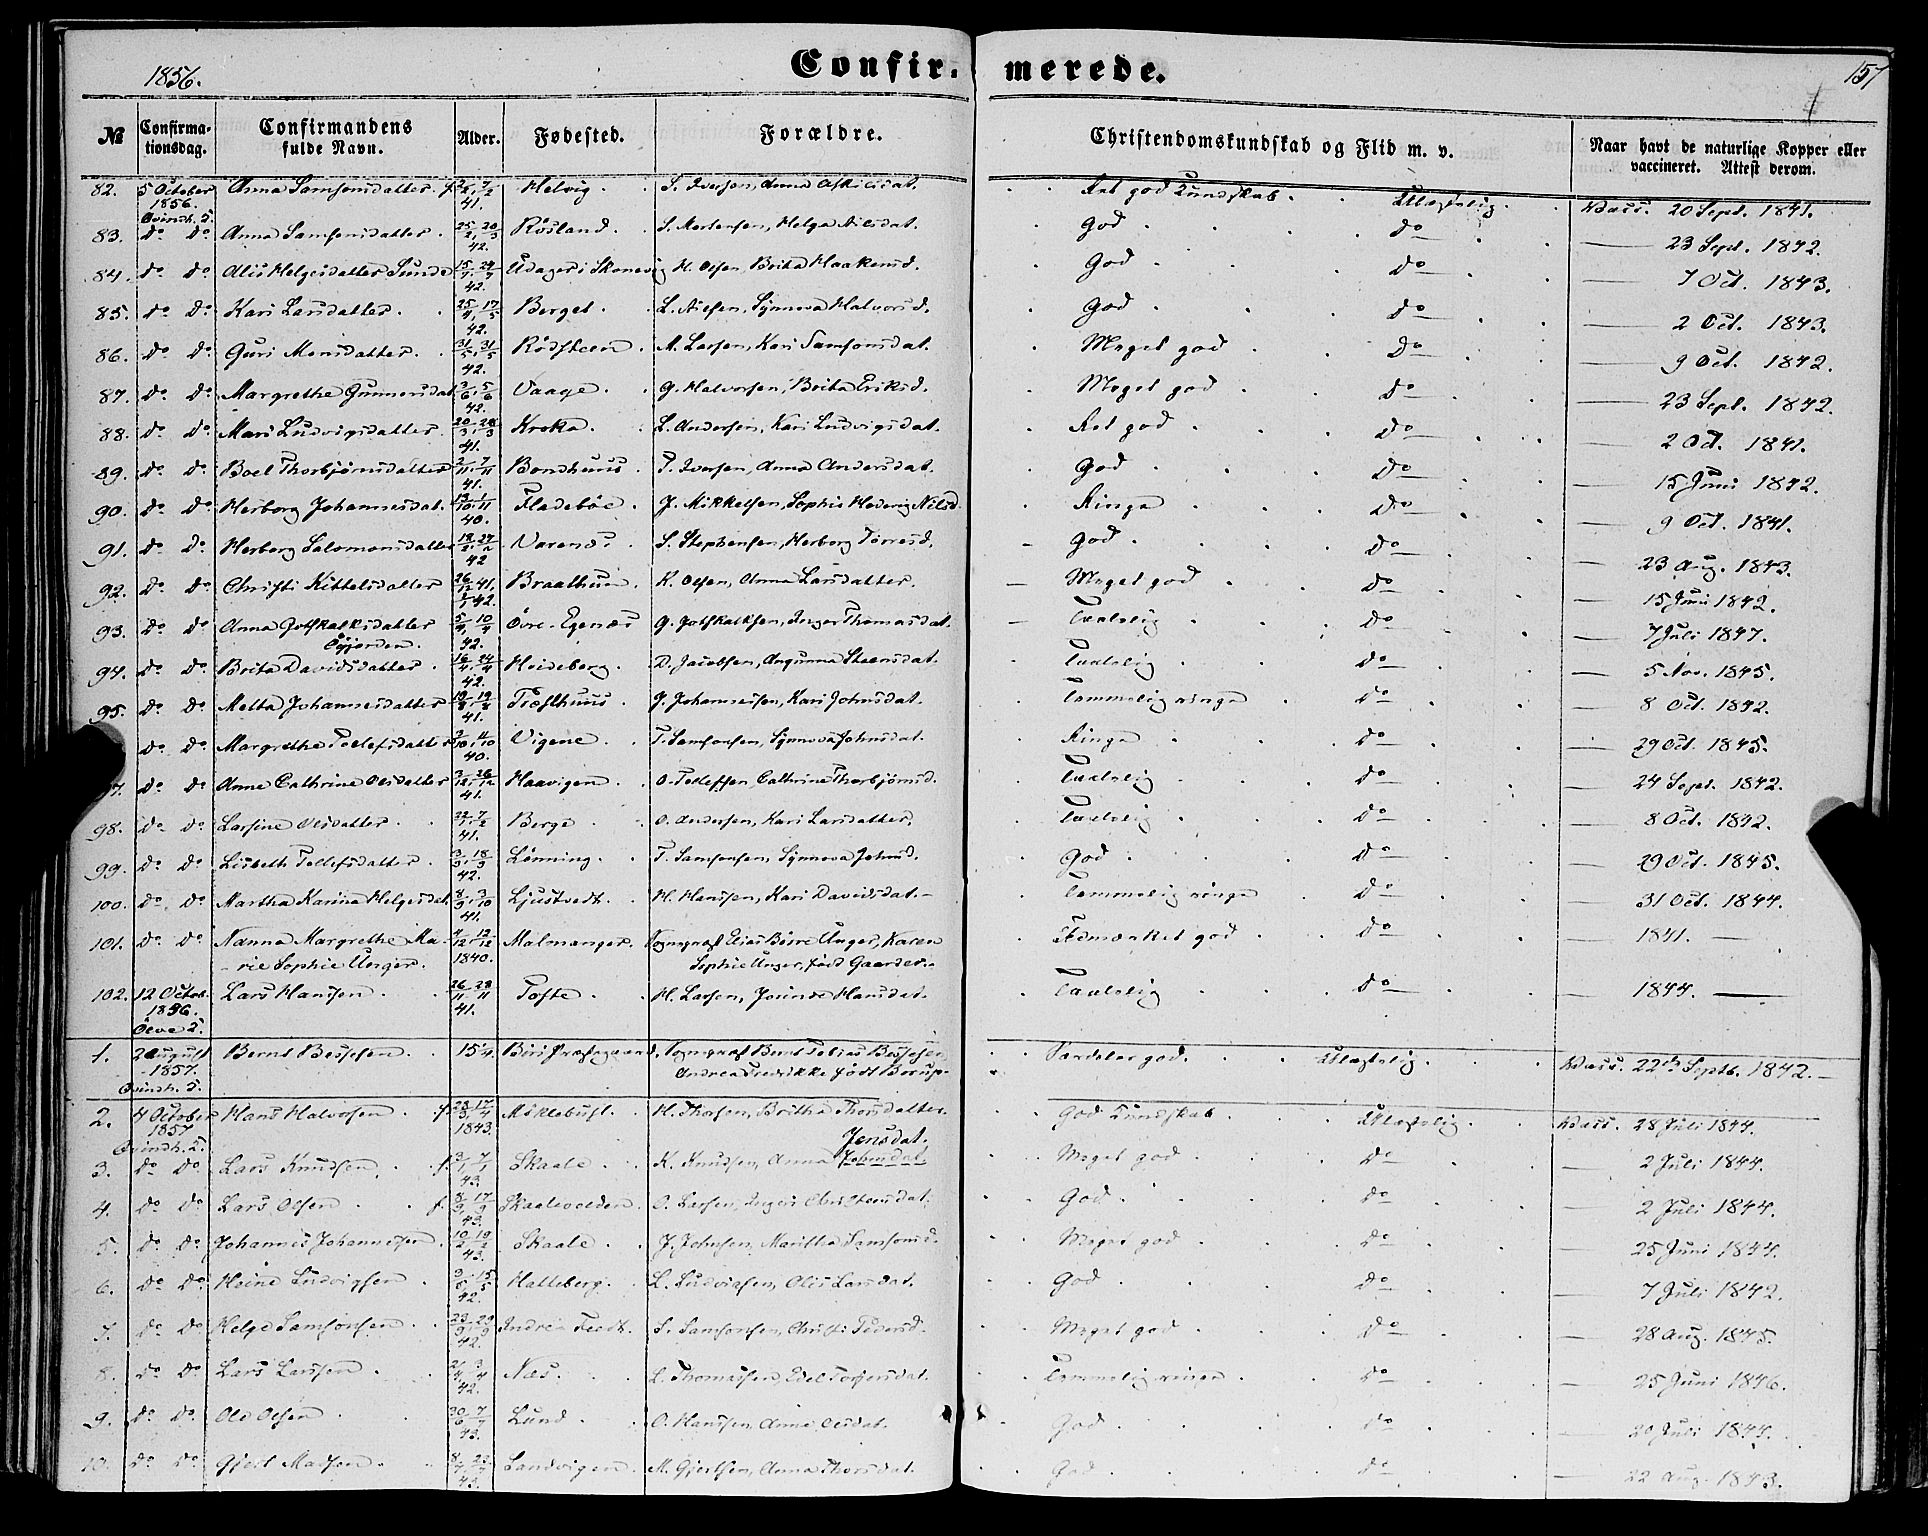 1856.
Confir- merede.
157
№ Confirma-tionsdag. Confirmandens fulde Navn. Alder. Fødested. Forældre. Christendomskundskab og Flid m. v. Naar havt de naturlige Kopper eller vaccineret. Attest derom.
82. 5 October 1856. Qvindh. K. Anna Samsonsdatter 41. Helvig S. Iversen, Anna Ret god Kundskab Ulastelig Vacc. 20 Sept. 1841.
83. do do Anna Samsonsdatter 42. Røsland S. Mortensen, Helga Nilsdat. God do 23 Sept. 1842.
84. do do Alis Helgesdatter Sunde 42. i Skonevig H. Olsen, Brita Haakensd. God do 7 Oct. 1843.
85. do do Kari Larsdatter 25/4, 17/5 42. Berget L. Nilsen, Synneva Halvorsd. God do 2 Oct. 1843.
86. do do Guri Monsdatter 31/5, 31/5 42. Rødsteen M. Larsen, Kari Samsonsdat. Meget god do 9 Oct. 1842.
87. do do Margrethe Gunnersdat. 42. Vaage G. Halvorsen, Brita Eriksd. Meget god do 23 Sept. 1842.
88. do do Mari Ludvigsdatter 41. Kroka L. Andersen, Kari Ludvigsdat. Ret god do 2 Oct. 1841.
89. do do Boel Thorbjørnsdatter 2/11, 7/11 41. Bondhuus T. Iversen, Anna Andersdat. God do 15 Juni 1842.
90. do do Herborg Johannesdat. 40. Fladebøe J. Mikkelsen, Sophie Hedevig Nilsd. Ringe do 9 Oct. 1841.
91. do do Herborg Salomonsdatter 42 Varenæs S. Stephensen, Herborg Tørresd. God do 23 Aug. 1843.
92. do do Christi Kittelsdatter 26/12 41, 42. Braathun K. Olsen, Anna Larsdatter. Meget god do 15 Juni 1842.
93. do do Anna Gotskalksdatter 5/4, 10/4 42. Øvre-Egenæs G. Gotskalksen, Inger Thomasdat. Taalelig do 7 Juli 1847.
94. do do Brita Davidsdatter 16/4, 24/4 42. Heideberg D. Jacobsen, Angunna Steensdat. Taalelig do 5 Nov. 1845.
95. do do Metta Johannesdatter 41. Træsthuus J. Johannessen, Kari Johnsdat. Temmelig ringe do 8 Oct. 1842.
do do Margrethe Tollefsdatter 40. Vigene T. Samsonsen, Synneva Johnsdat. Ringe do 29 Oct. 1845.
97. do do Anne Cathrine Olesdatter 3/12, 26/12 41. Haavigen O. Tollefsen, Cathrine Thorbjørnsd. Taalelig do 24 Sept. 1842.
98. do do Larsine Olsdatter 41. Berge O. Andersen, Kari Larsdatter. Taalelig do 8 Oct. 1842.
99. do do Lisbeth Tollefsdatter 3/3, 18/3 42. Lønning T. Samsonsen, Synneva Johnsd. God do 29 Oct. 1845.
100. do do Martha Karina Helgesdat. 8/9, 3/10 41. Ljustvedt H. Hansen, Kari Davidsdat. Temmelig ringe do 31 Oct. 1844.
101. do do Nanna Margrethe Ma- 4/12, 12/12 Malmanger Sogneprest Elias Børre Unger, Karen Udmærket god do 1841.
rie Sophie Unger. 1840. Sophie Unger, født Gaarder
102. 12 Octob. 1856. Ølve K. Lars Hansen 26/11, 28/11 41. Tofte H. Larsen, Hansdat. Taalelig do 1844.
1. 2 August 1857. Qvindh. K. Bernt Bessesen 15 Biri Præstegaard Sogneprest Bernt Tobias Bessesen, Andrea Fredrikke født Borup Særdeles god Ulastelig Vacc. 22de Septb. 1842.
2. 4 October 1857 Qvindh. K. Hans Halvorsen 1843. Miklebust H. Thorsen, Britha Thorsdatter God Kundskab Ulastelig Vacc. 28 Juli 1844.
3. do do Lars Knudsen 43. Skaale K. Knudsen, Anna Jensdat. Meget god do 2 Juli 1844.
4. do do Lars Olsen 43. Skaalevolden O. Larsen, Christensdat. God do 2 Juli 1844.
5. do do Johannes Johannessen 10/2, 19/2 43. Skaale J. Johnsen, Maritha Samsonsd. Meget god do 25 Juni 1844.
6. do do Heine Ludvigsen 42. Hatteberg L. Ludvigsen, Olis Larsdat. God do 7 Juli 1842.
7. do do Helge Samsonsen 23/9, 29/9 42. Indre Tvedt S. Samsonsen, Christi Pedersd. Meget god do 28 Aug. 1845.
8. do do Lars Larssen 42. Næs L. Thomassen, Edel Torgersdat. Temmelig ringe do 25 Juni 1846.
9. do do Ole Olsen 43. Lund O. Hansen, Anna Olsdat. God do 20 Juli 1844.
10. do do Gjert Madsen 43. Sandvigen M. Gjertsen, Anna Thorsdat. God do 22 Aug. 1843.